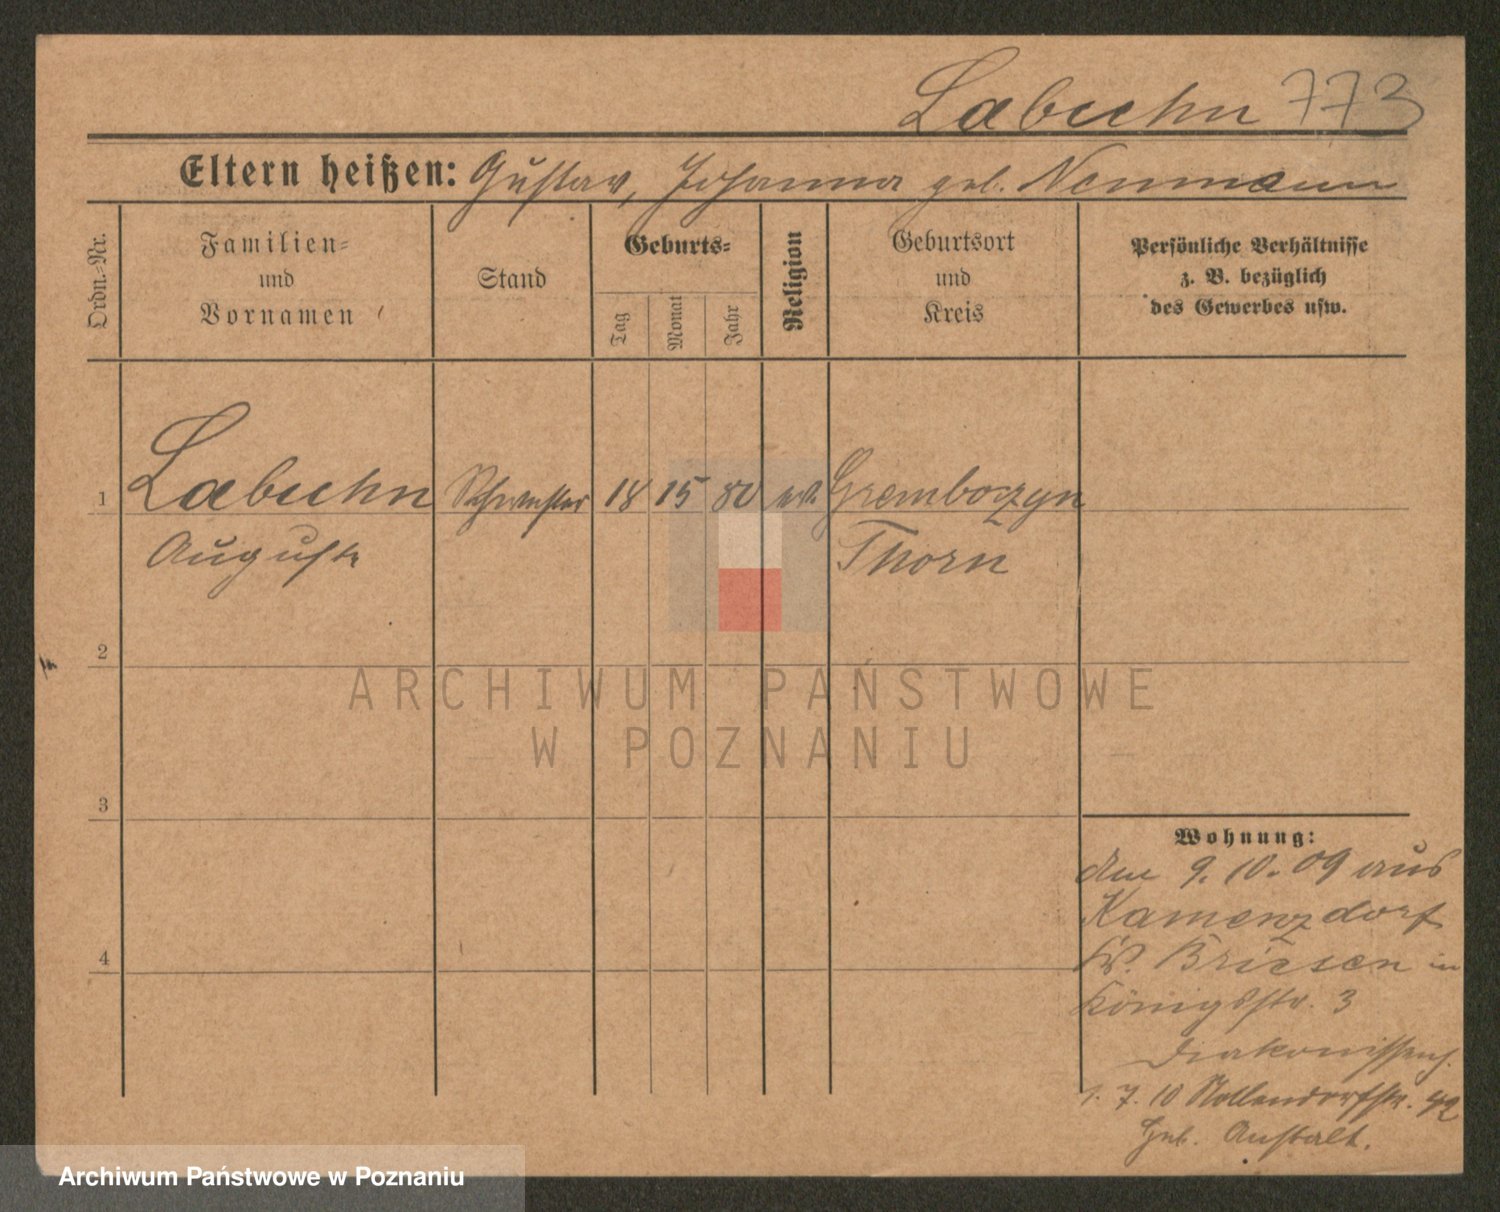 Labuhn 773
Eltern heißen: Gustav, Johanna geb. Neumann
Ordn.-Nr.
Familien-
und
Vornamen
Stand
Geburts-
Tag
Monat
Jahr
Religion
Geburtsort
und
Kreis
Persönliche Verhältnisse
z. B. bezüglich
des Gewerbes usw.
1 Labuhn Schwester 18 15 80 ev. Gremboczyn
Auguste Thorn
2
ARCHIWUM PAŃSTWOWE
W POZNANIU
3
Wohnung:
den 9.10.09 aus
Kamenzdorf
Kr. Briesen in
Königsstr. 3
Diakonissenh.
1.7.10 Nollendorfstr. 42
Geb. Anstalt.
4
Archiwum Państwowe w Poznaniu